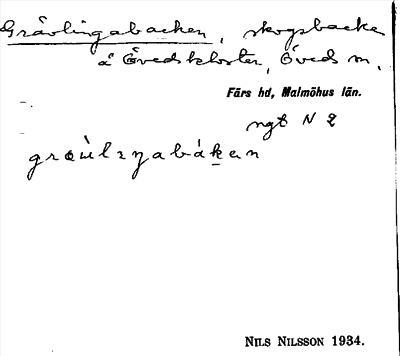 Grävlingabacken, skogsbacke
å Övedskloster, Öveds sn,
Färs hd, Malmöhus län.
ngt N 2
græ̀ulɪŋabáken
NILS NILSSON 1934.